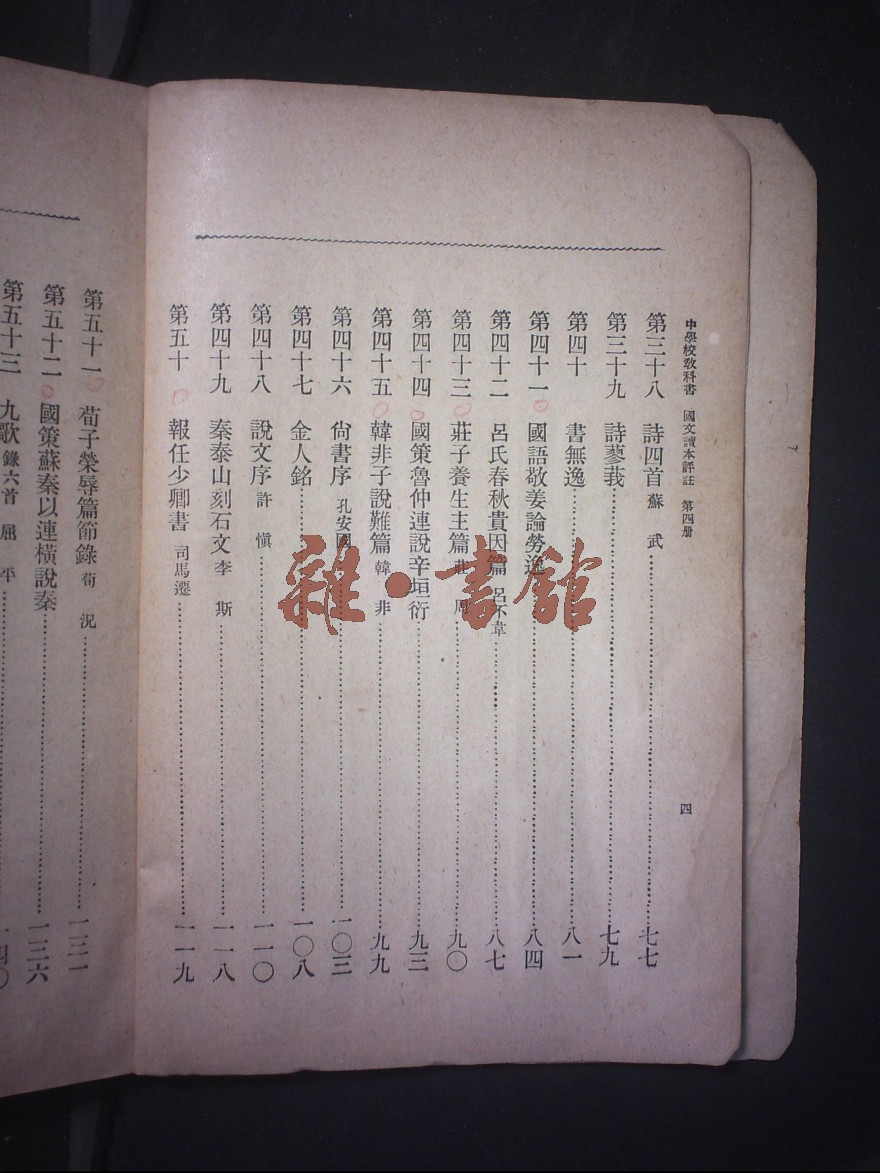 中學校敎科書 國文讀本評註 第四册
四
第三十八 詩四首 蘇武 七七
第三十九 詩蓼莪 七九
第四十 書無逸 八一
第四十一 國語敬姜論勞逸 八四
第四十二 呂氏春秋貴因篇 呂不韋 八七
第四十三 莊子養生主篇 莊周 九〇
第四十四 國策魯仲連說辛垣衍 九三
第四十五 韓非子說難篇 韓非 九九
第四十六 尙書序 孔安國 一〇三
第四十七 金人銘 一〇八
第四十八 說文序 許愼 一一〇
第四十九 秦泰山刻石文 李斯 一一八
第五十 報任少卿書 司馬遷 一一九
第五十一 荀子榮辱篇節錄 荀況 一三一
第五十二 國策蘇秦以連橫說秦 一三六
第五十三 九歌錄六首 屈平 一四〇
雜·書館